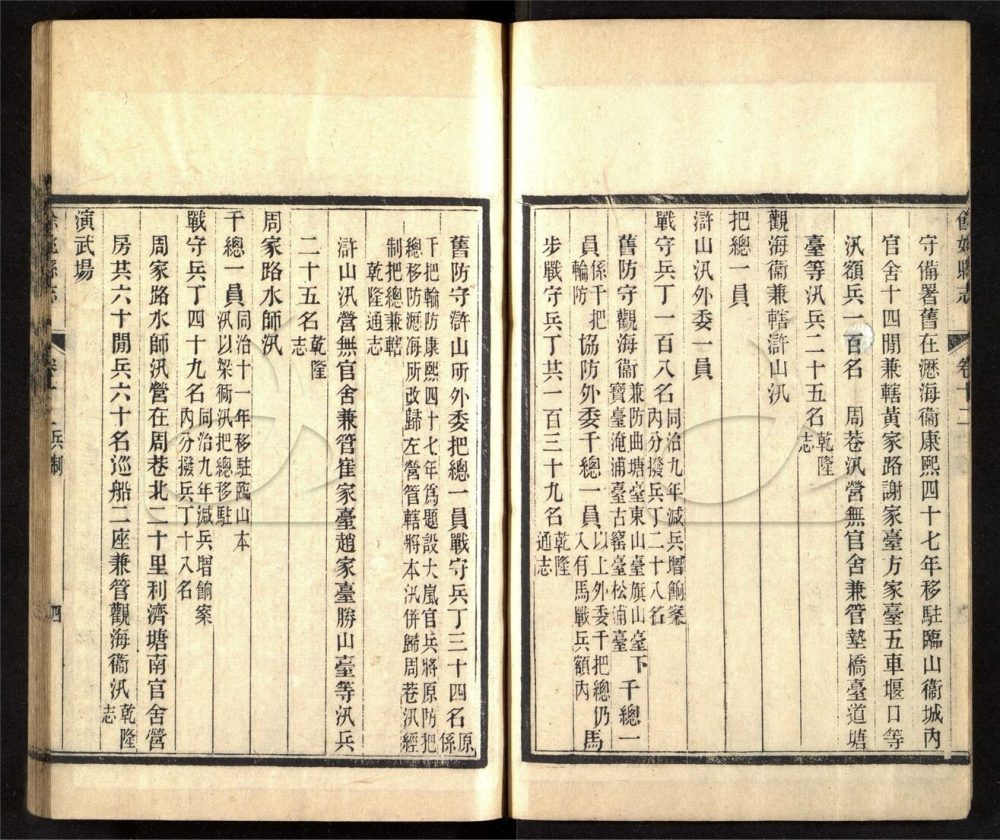 餘姚縣志
卷十二
守備署舊在瀝海衞康熙四十七年移駐臨山衞城內
官舍十四閒兼轄黃家路謝家臺方家臺五車堰口等
汛額兵一百名　周巷汛營無官舍兼管墊橋臺道塘
臺等汛兵二十五名乾隆志
觀海衞兼轄滸山汛
把總一員
滸山汛外委一員
戰守兵丁一百八名同治九年減兵增餉案內分撥兵丁二十八名
舊防守觀海衞兼防曲塘臺東山臺旗山臺下寶臺淹浦臺古窰臺松浦臺千總一
員係千把輪防協防外委千總一員以上外委千把總仍入有馬戰兵額內馬
步戰守兵丁共一百三十九名乾隆通志
舊防守滸山所外委把總一員戰守兵丁三十四名原係
千把輪防康熙四十七年爲題設大嵐官兵將原防把
總移防瀝海所改歸左營管轄將本汛併歸周巷汛經
制把總兼轄
乾隆通志
滸山汛營無官舍兼管崔家臺趙家臺勝山臺等汛兵
二十五名乾隆志
周家路水師汛
千總一員同治十一年移駐臨山本汛以梁衕汛把總移駐
戰守兵丁四十九名同治九年減兵增餉案內分撥兵丁十八名
周家路水師汛營在周巷北二十里利濟塘南官舍營
房共六十閒兵六十名巡船二座兼管觀海衞汛乾隆志
演武場
兵制
四